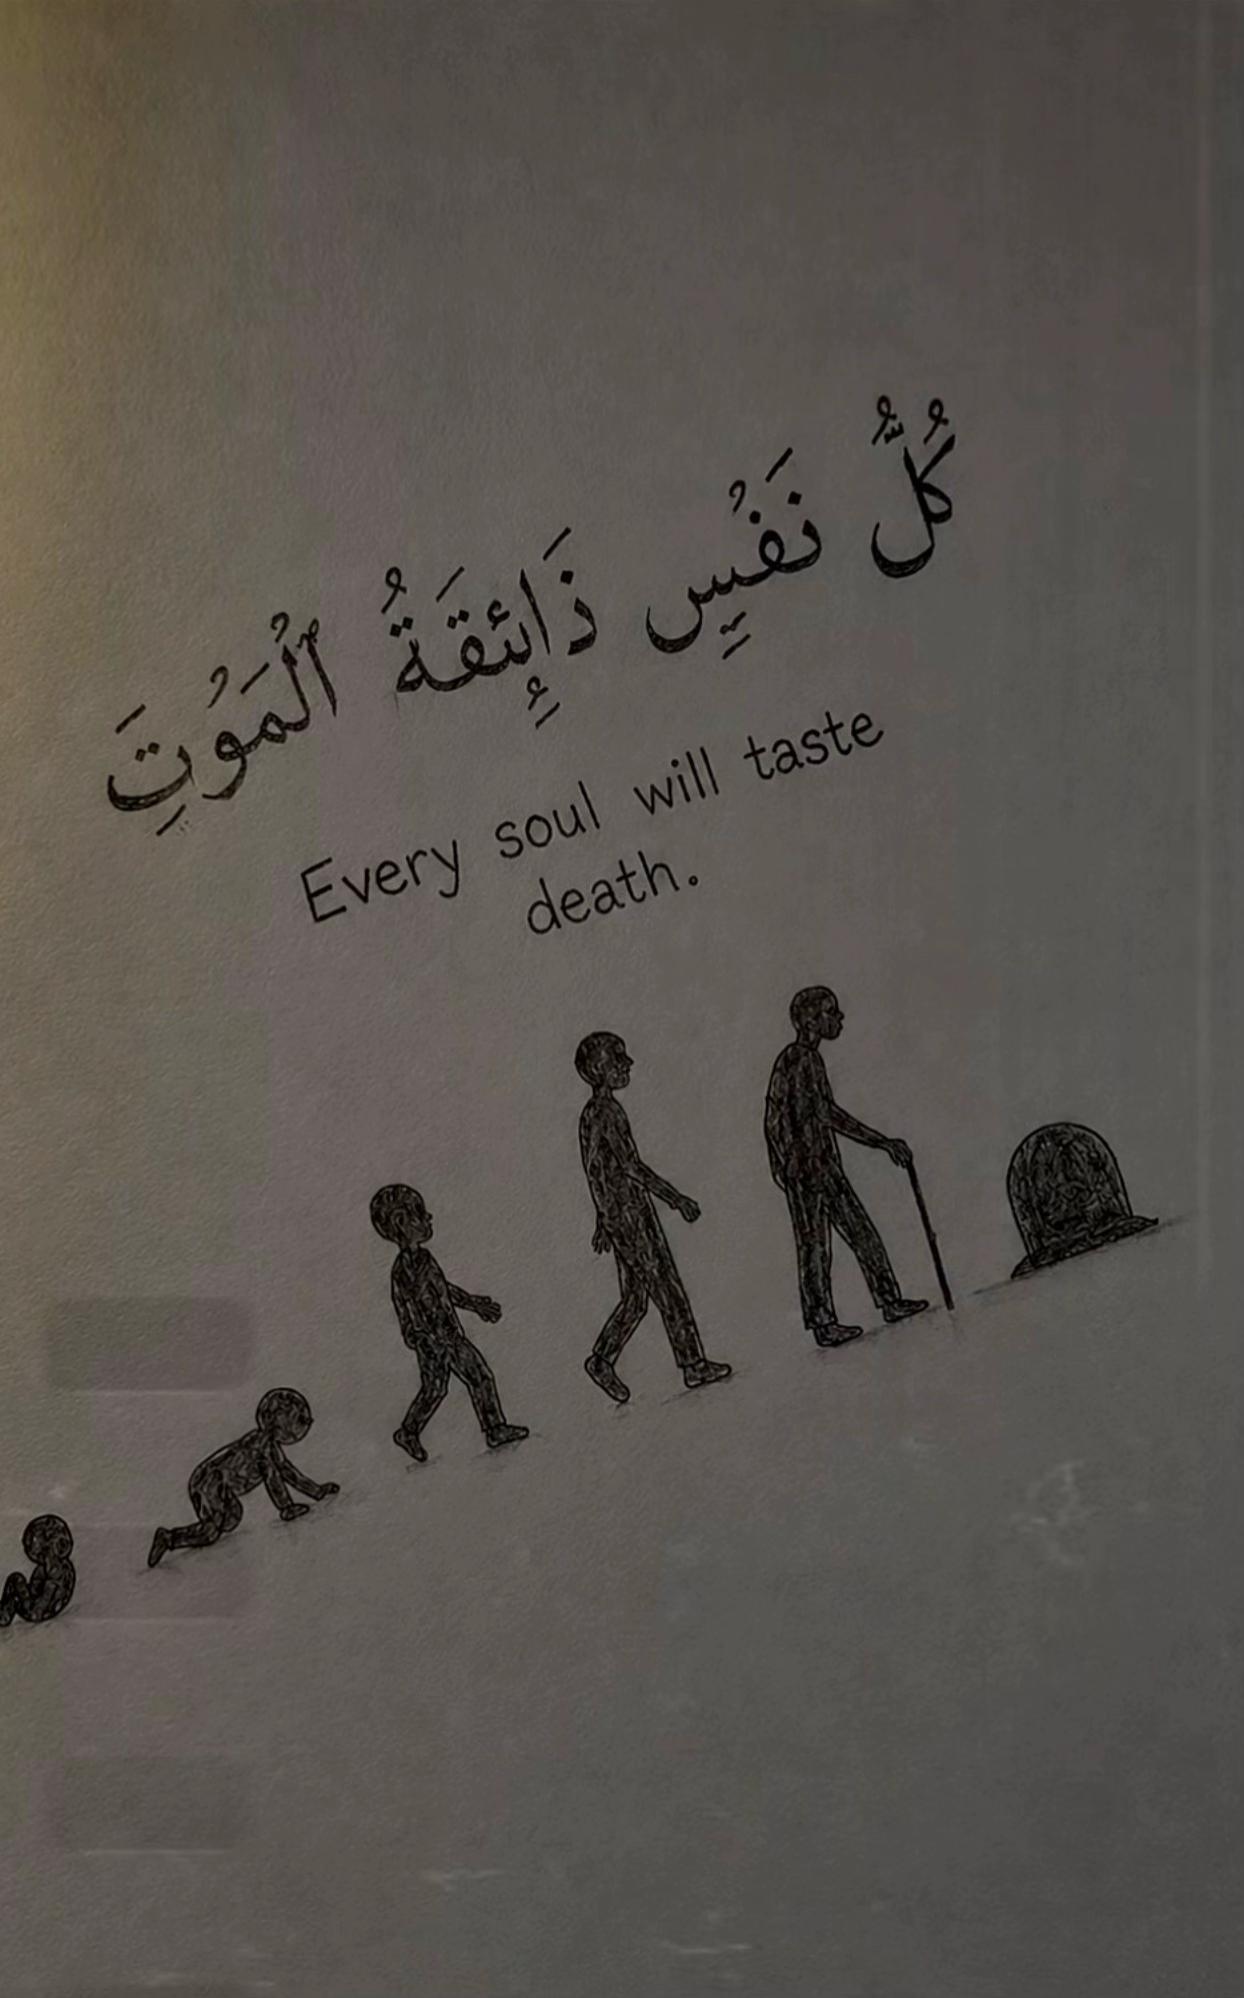 كُلُّ نَفْسٍ ذَائِقَةُ الْمَوْتِ
Every soul will taste
death.